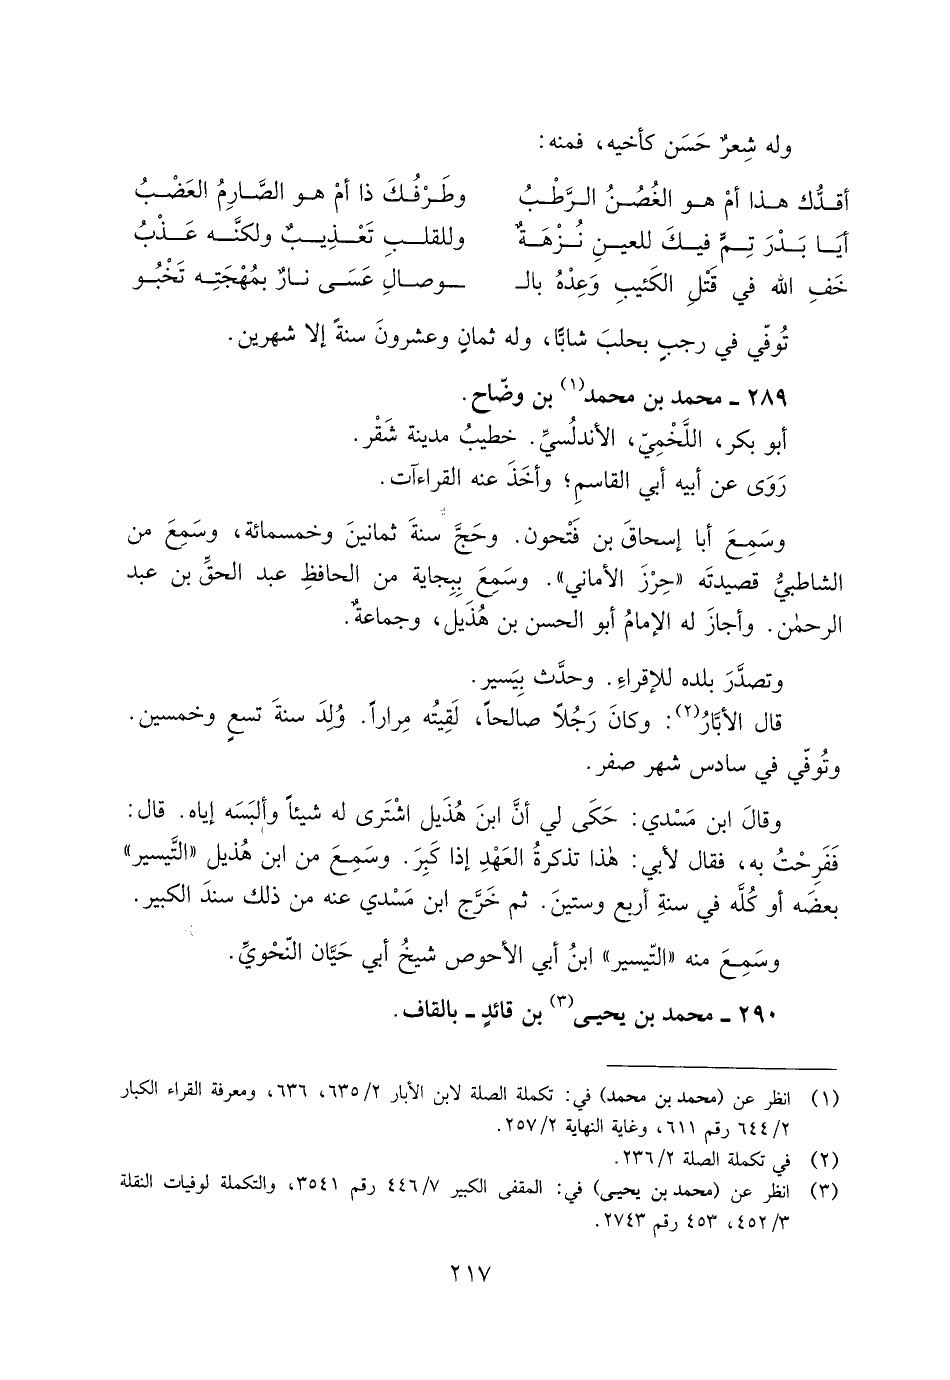 وله شِعرٌ حَسَن كأخيه، فمنه:
أقدُّك هذا أمْ هو الغُصُنُ الرَّطْبُ وطَرْفُكَ ذا أمْ هو الصَّارِمُ العَضْبُ
أيَا بَدْرَ تِمٍّ فيكَ للعينِ نُزْهَةٌ وللقلبِ تَعْذِيبٌ ولكنَّه عَذْبُ
خَفِ الله في قَتْلِ الكَئيبِ وَعِدْهُ بالـ ـوصالِ عَسَى نارٌ بمُهْجَتِه تَخْبُو
تُوفّي في رجبٍ بحلبَ شابًّا، وله ثمانٍ وعشرونَ سنةً إلا شهرين.
٢٨٩ ـ محمد بن محمد(١) بن وضّاح.
أبو بكر، اللَّخْمِيّ، الأندلُسيِّ. خطيبُ مدينة شَقْر.
رَوَى عن أبيه أبي القاسمِ؛ وأخَذَ عنه القراءآت.
وسَمِعَ أبا إسحاقَ بن فَتْحون. وحَجَّ سنةَ ثمانينَ وخمسمائة، وسَمِعَ من
الشاطبيُّ قصيدتَه «حِرْزَ الأماني». وسَمِعَ بِبِجاية من الحافظِ عبد الحقِّ بن عبد
الرحمٰن. وأجازَ له الإمامُ أبو الحسن بن هُذَيل، وجماعةٌ.
وتصدَّرَ بلده للإقراءِ. وحدَّث بِيَسير.
قال الأبَّارُ(٢): وكانَ رَجُلاً صالحاً، لَقِيتُه مِراراً. وُلِدَ سنةَ تسعٍ وخمسين.
وتُوفّي في سادس شهر صفر.
وقالَ ابن مَسْدي: حَكَى لي أنَّ ابنَ هُذَيل اشْتَرى له شيئاً وألبَسَه إياه. قال:
فَفَرِحْتُ به، فقال لأبي: هٰذا تذكرةُ العَهْدِ إذا كَبِرَ. وسَمِعَ من ابن هُذيل «التَّيسير»
بعضَه أو كُلَّه في سنةِ أربع وستينَ. ثم خَرَّج ابن مَسْدي عنه من ذلك سندَ الكبير.
وسَمِعَ منه «التّيسير» ابنُ أبي الأحوص شيخُ أبي حَيَّان النّحْويِّ.
٢٩٠ ـ محمد بن يحيى(٣) بن قائدٍ ـ بالقاف.
(١) انظر عن (محمد بن محمد) في: تكملة الصلة لابن الأبار ٦٣٥/٢، ٦٣٦، ومعرفة القراء الكبار
٦٤٤/٢ رقم ٦١١، وغاية النهاية ٢٥٧/٢.
(٢) في تكملة الصلة ٢٣٦/٢.
(٣) انظر عن (محمد بن يحيى) في: المقفى الكبير ٤٤٦/٧ رقم ٣٥٤١، والتكملة لوفيات النقلة
٤٥٢/٣، ٤٥٣ رقم ٢٧٤٣.
٢١٧